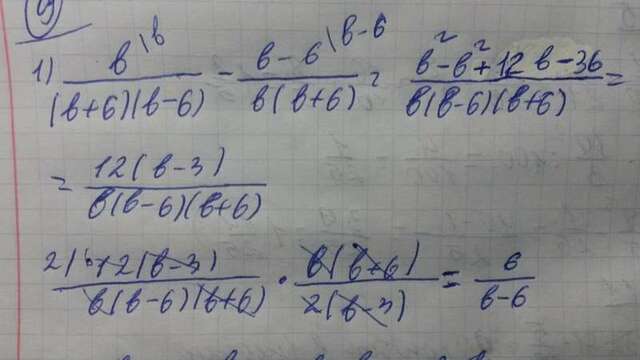 9)
1) b\b / (b+6)(b-6) - b-6\b-6 / b(b+6) = b²-b²+12b-36 / b(b-6)(b+6) =
= 12(b-3) / b(b-6)(b+6)
2) 12(b-3) / b(b-6)(b+6) · b(b+6) / 2(b-3) = 6 / b-6